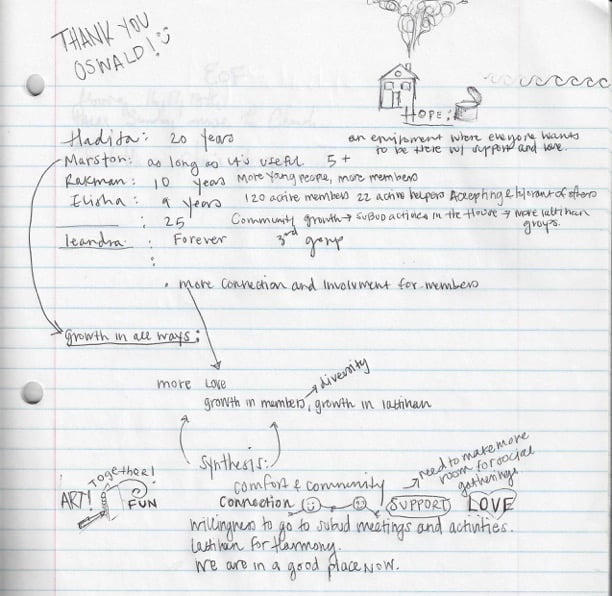 THANK YOU
OSWALD!
HOPE:
an enviroment where everyone wants
to be there w/ support and love.
Hadita: 20 years
Marston: as long as it's useful 5+
Rakman: 10 years More young people, more members
Elisha: 9 years 120 active members 22 active helpers Accepting & tolerant of others
: 25 Community growth → Subud activities in the House → more latihan
groups.
leandra: Forever 3rd group
:
• more Connection and Involvment for members
Growth in all ways:
more Love
diversity
growth in members, growth in latihan
Synthesis:
need to make more
room for social
gatherings
Together!
ART!
FUN
comfort & community
Connection SUPPORT LOVE
willingness to go to subud meetings and activities.
Latihan for Harmony.
We are in a good place NOW.